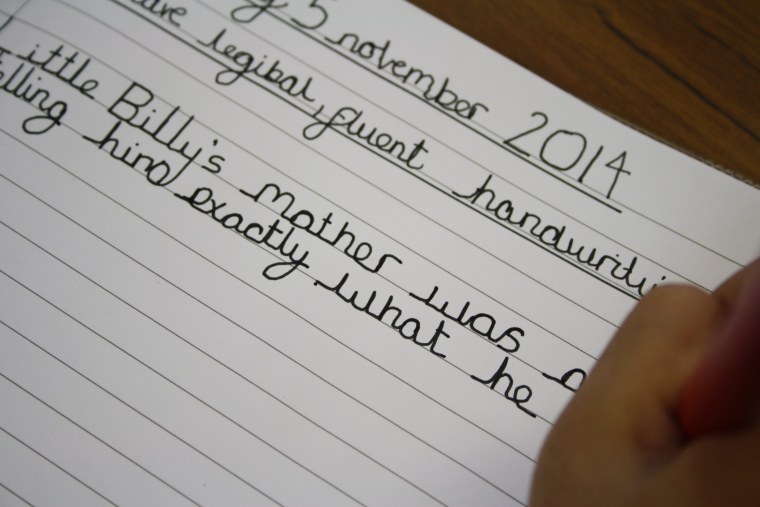 5 november 2014
legibal, fluent handwriti
ittle Billy's mother was a
lling him exactly what he